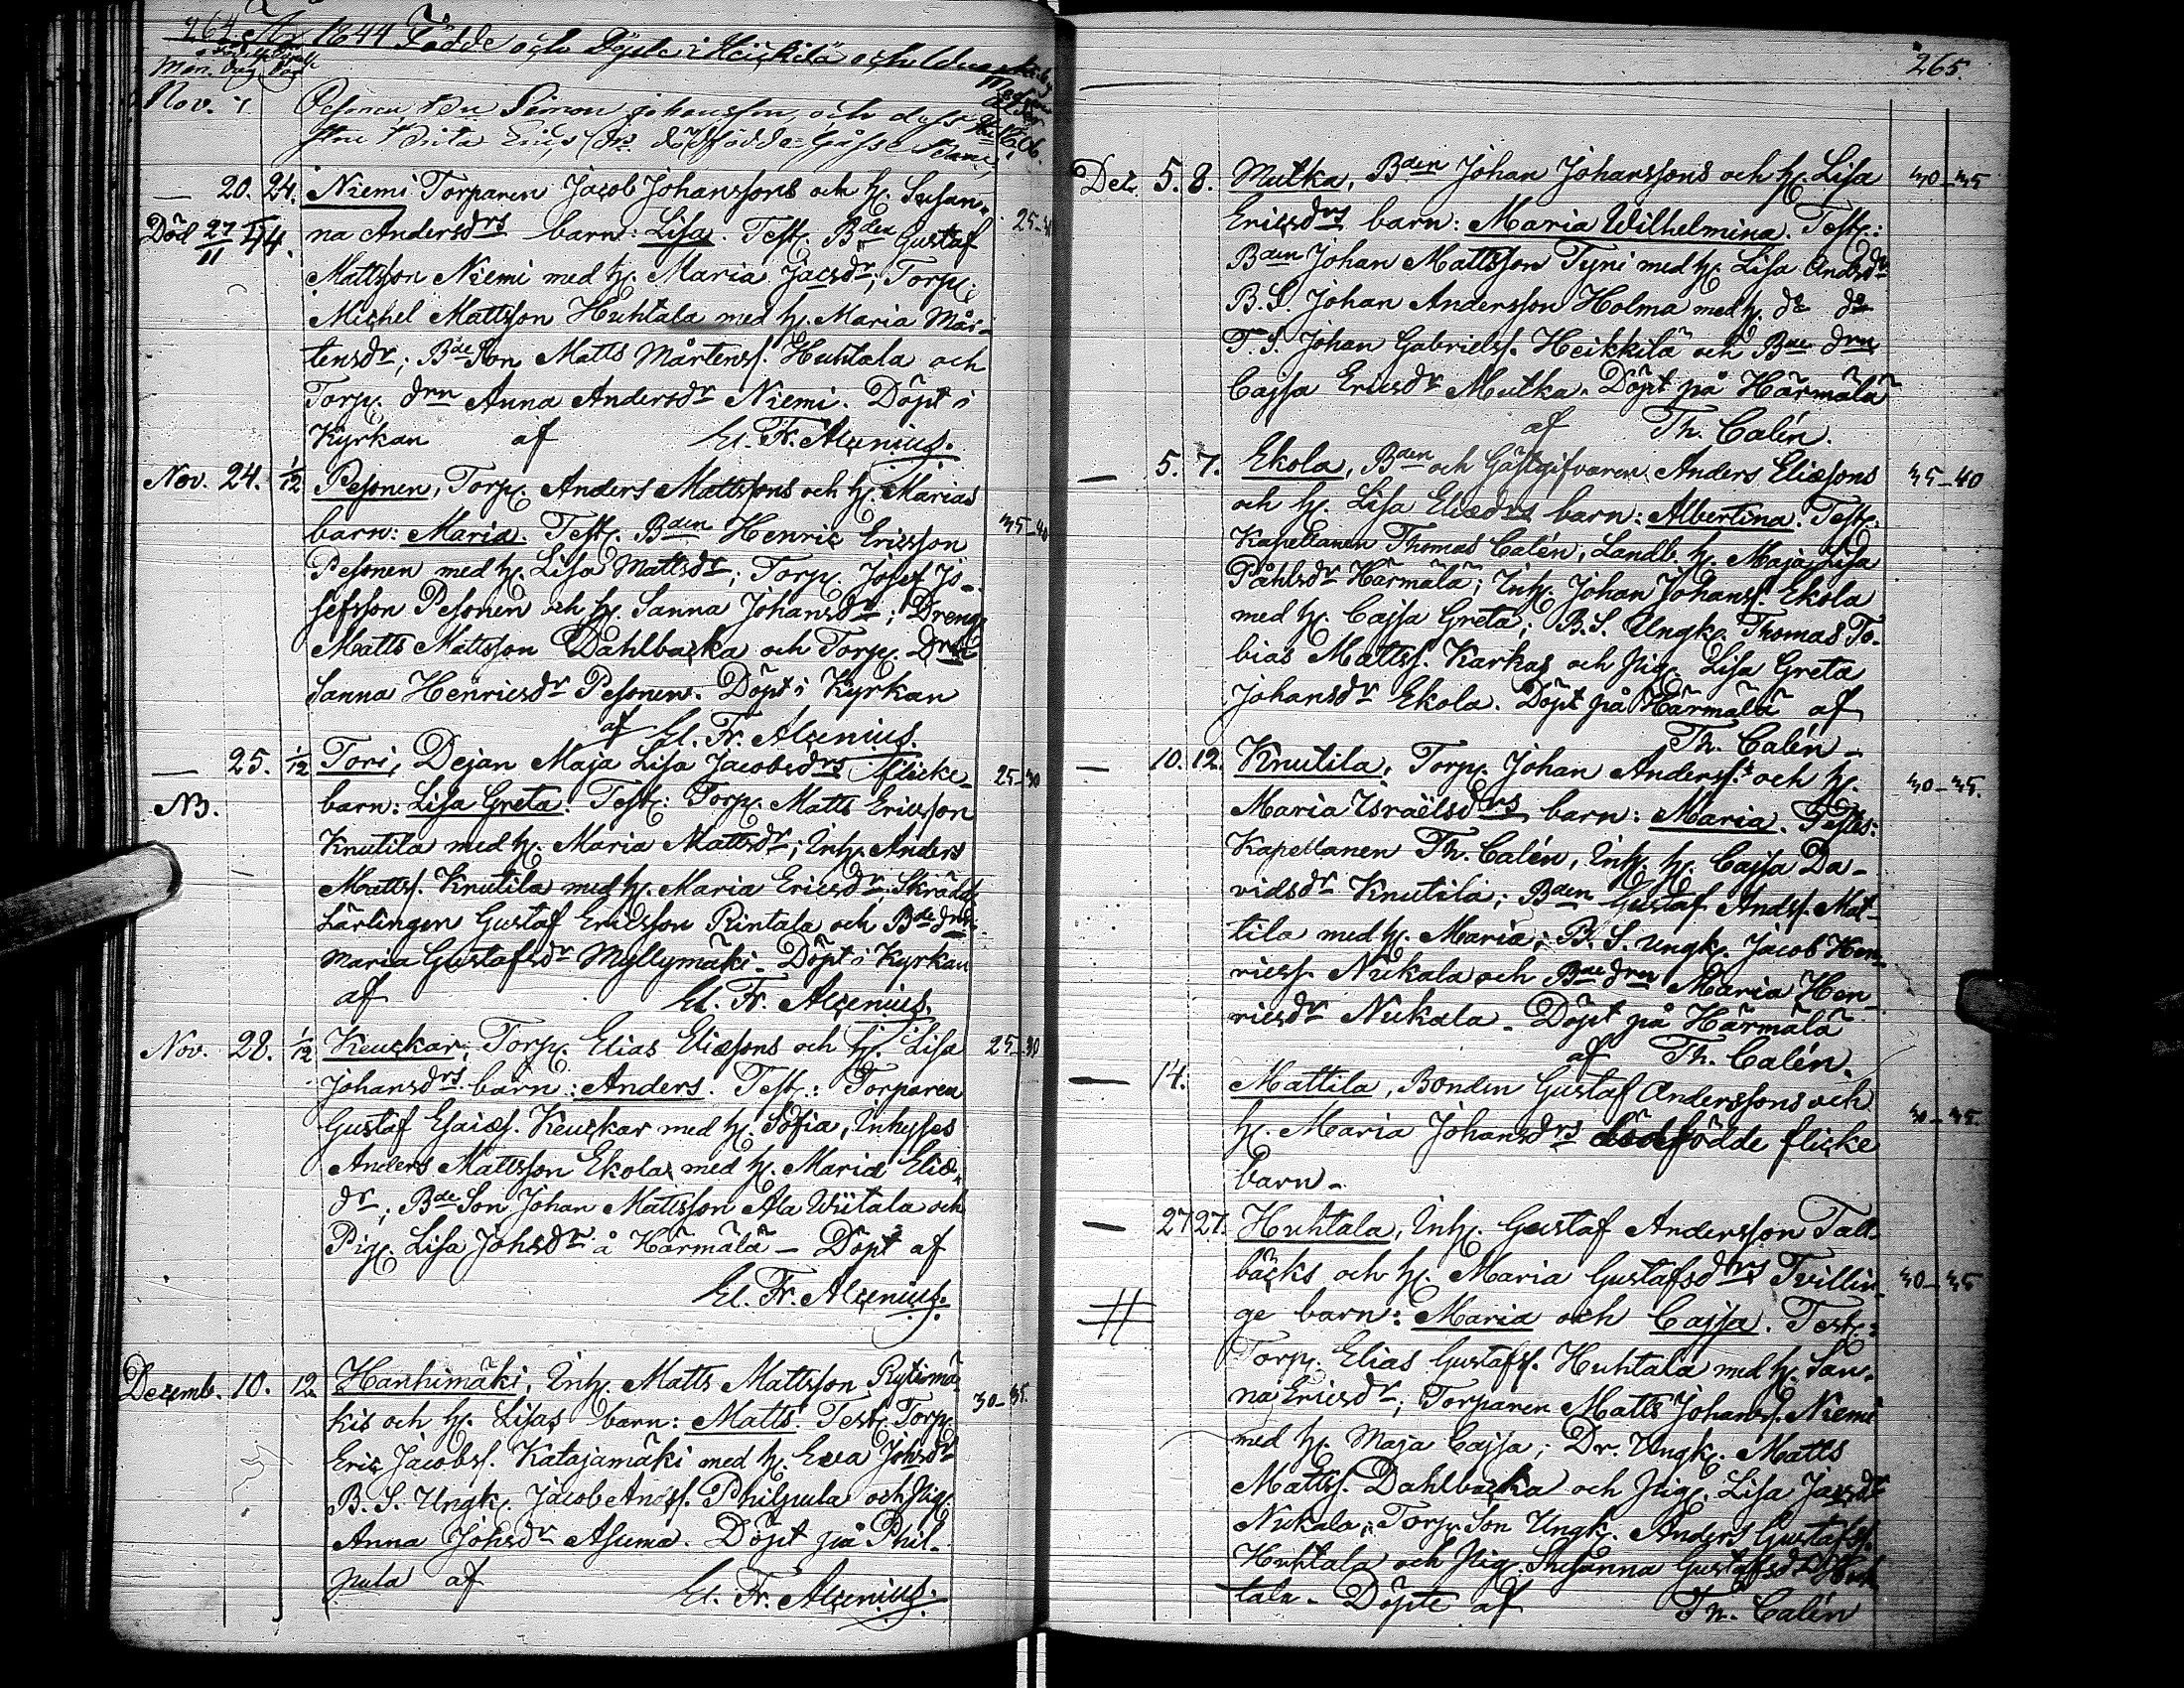 264. År 1844 Födde och Döpte i Heickilä
Mån. dag dag
Nov. 1. Pesonen, Simon Johansson, och dess
Hu Brita Erics drs dödfödde Gosse Barn
— 20. 24. Niemi Torparen Jacob Johanssons och H. Susan-
Död 27/11 44. na Andersdrs barn: Lisa. Test. Bden Gustaf 25-30
Mattsson Niemi med H. Maria Jacsdr; Torp.
Michel Mattsson Huhtala med H. Maria Mår-
tensdr; Bde Son Matts Mårtenss. Huhtala och
Torp. drn Anna Andersdr Niemi. Döpt i
Kyrkan af El. Fr. Alcenius.
Nov. 24. 1/12 Pesonen, Torp. Anders Mattssons och H. Marias
barn: Maria. Test. Bden Henric Ericsson 35-40
Pesonen med H. Lisa Mattsdr; Torp. Josef Jo-
sefsson Pesonen och H. Sanna Johansdr; Dreng
Matts Mattsson Dahlbacka och Torp. Drn
Sanna Henricsdr Pesonen. Döpt i Kyrkan
af El. Fr. Alcenius.
— 25. 1/12 Tori, Dejan Maja Lisa Jacobsdrs flicke- 25-30
NB. barn: Lisa Greta. Test: Torp. Matts Ericsson
Knutila med H. Maria Mattsdr; Inh. Anders
Mattss. Knutila med H. Maria Ericsdr. Skrädd.
Lärlingen Gustaf Ericsson Rintala och Bde drn
Maria Gustafsdr Myllymäki. Döpt i Kyrkan
af El. Fr. Alcenius.
Nov. 28. 1/12 Keuckar, Torp. Elias Eliæsons och H. Lisa 25-30
Johansdrs barn: Anders. Test.: Torparen
Gustaf Esaiæs. Keuckar med H. Sofia, Inhyses
Anders Mattsson Ekola med H. Maria Eliæ-
dr; Bde Son Johan Mattsson Ala Wiitala och
Pig. Lisa Johsdr å Härmälä — Döpt af
El. Fr. Alcenius.
Decemb. 10. 12. Hanhimäki, Inh. Matts Mattsson Rytimä-
kis och H. Lisas barn: Matts. Test. Torp. 30-35.
Eric Jacobss. Katajamäki med H. Eva Johsdr
B. S. Ungk. Jacob Andss. Philpula och Pig.
Anna Johsdr Asuma. Döpt på Phil-
pula af El. Fr. Alcenius.
265.
Dec. 5. 8. Mutka, Bden Johan Johanssons och H. Lisa 30-35
Ericsdrs barn: Maria Wilhelmina. Test.:
Bden Johan Mattsson Tyni med H. Lisa Andsdr
B. S. Johan Andersson Holma med H. do do
T. S. Johan Gabrielss. Heikkilä och Bde drn
Cajsa Ericsdr Mutka. Döpt på Härmälä
af Th. Calén.
— 5. 7. Ekola, Bden och Gästgifvaren Anders Eliæsons 35-40
och H. Lisa Eliædrs barn: Albertina. Test.
Kapellanen Thomas Calén, Landb. H. Maja Lisa
Påhlsdr Härmälä; Inh. Johan Johanss. Ekola
med H. Cajsa Greta; B. S. Ungk. Thomas To-
bias Mattss. Karkas och Pig. Lisa Greta
Johansdr Ekola. Döpt på Härmälä af
Th. Calén —
— 10. 12. Knutila, Torp. Johan Anderss. och H. 30-35.
Maria Israëlsdrs barn: Maria. Testes:
Kapellanen Th. Calén, Inh. H. Cajsa Da-
vidsdr Knutila; Bden Gustaf Andss. Mat-
tila med H. Maria; B. S. Ungk. Jacob Hen-
ricss. Nukala och Bde drn Maria Hen-
ricsdr Nukala. Döpt på Härmälä
af Th. Calén.
— 14. Mattila, Bonden Gustaf Anderssons och
H. Maria Johansdrs dödfödde flicke 30-35.
barn.
— 27 27. Huhtala, Inh. Gustaf Andersson Tall-
bäcks och H. Maria Gustafsdrs Tvillin- 30-35
ge barn: Maria och Cajsa. Test.:
Torp. Elias Gustafss. Huhtala med H. San-
na Ericsdr; Torparen Matts Johanss. Niemi
med H. Maja Cajsa; Dr. Ungk. Matts
Mattss. Dahlbacka och Pig. Lisa Jacsdr
Nukala; Torp. Son Ungk. Anders Gustafss.
Huhtala och Pig. Susanna Gustafsdr Huh-
tala. Döpte af Th. Calén